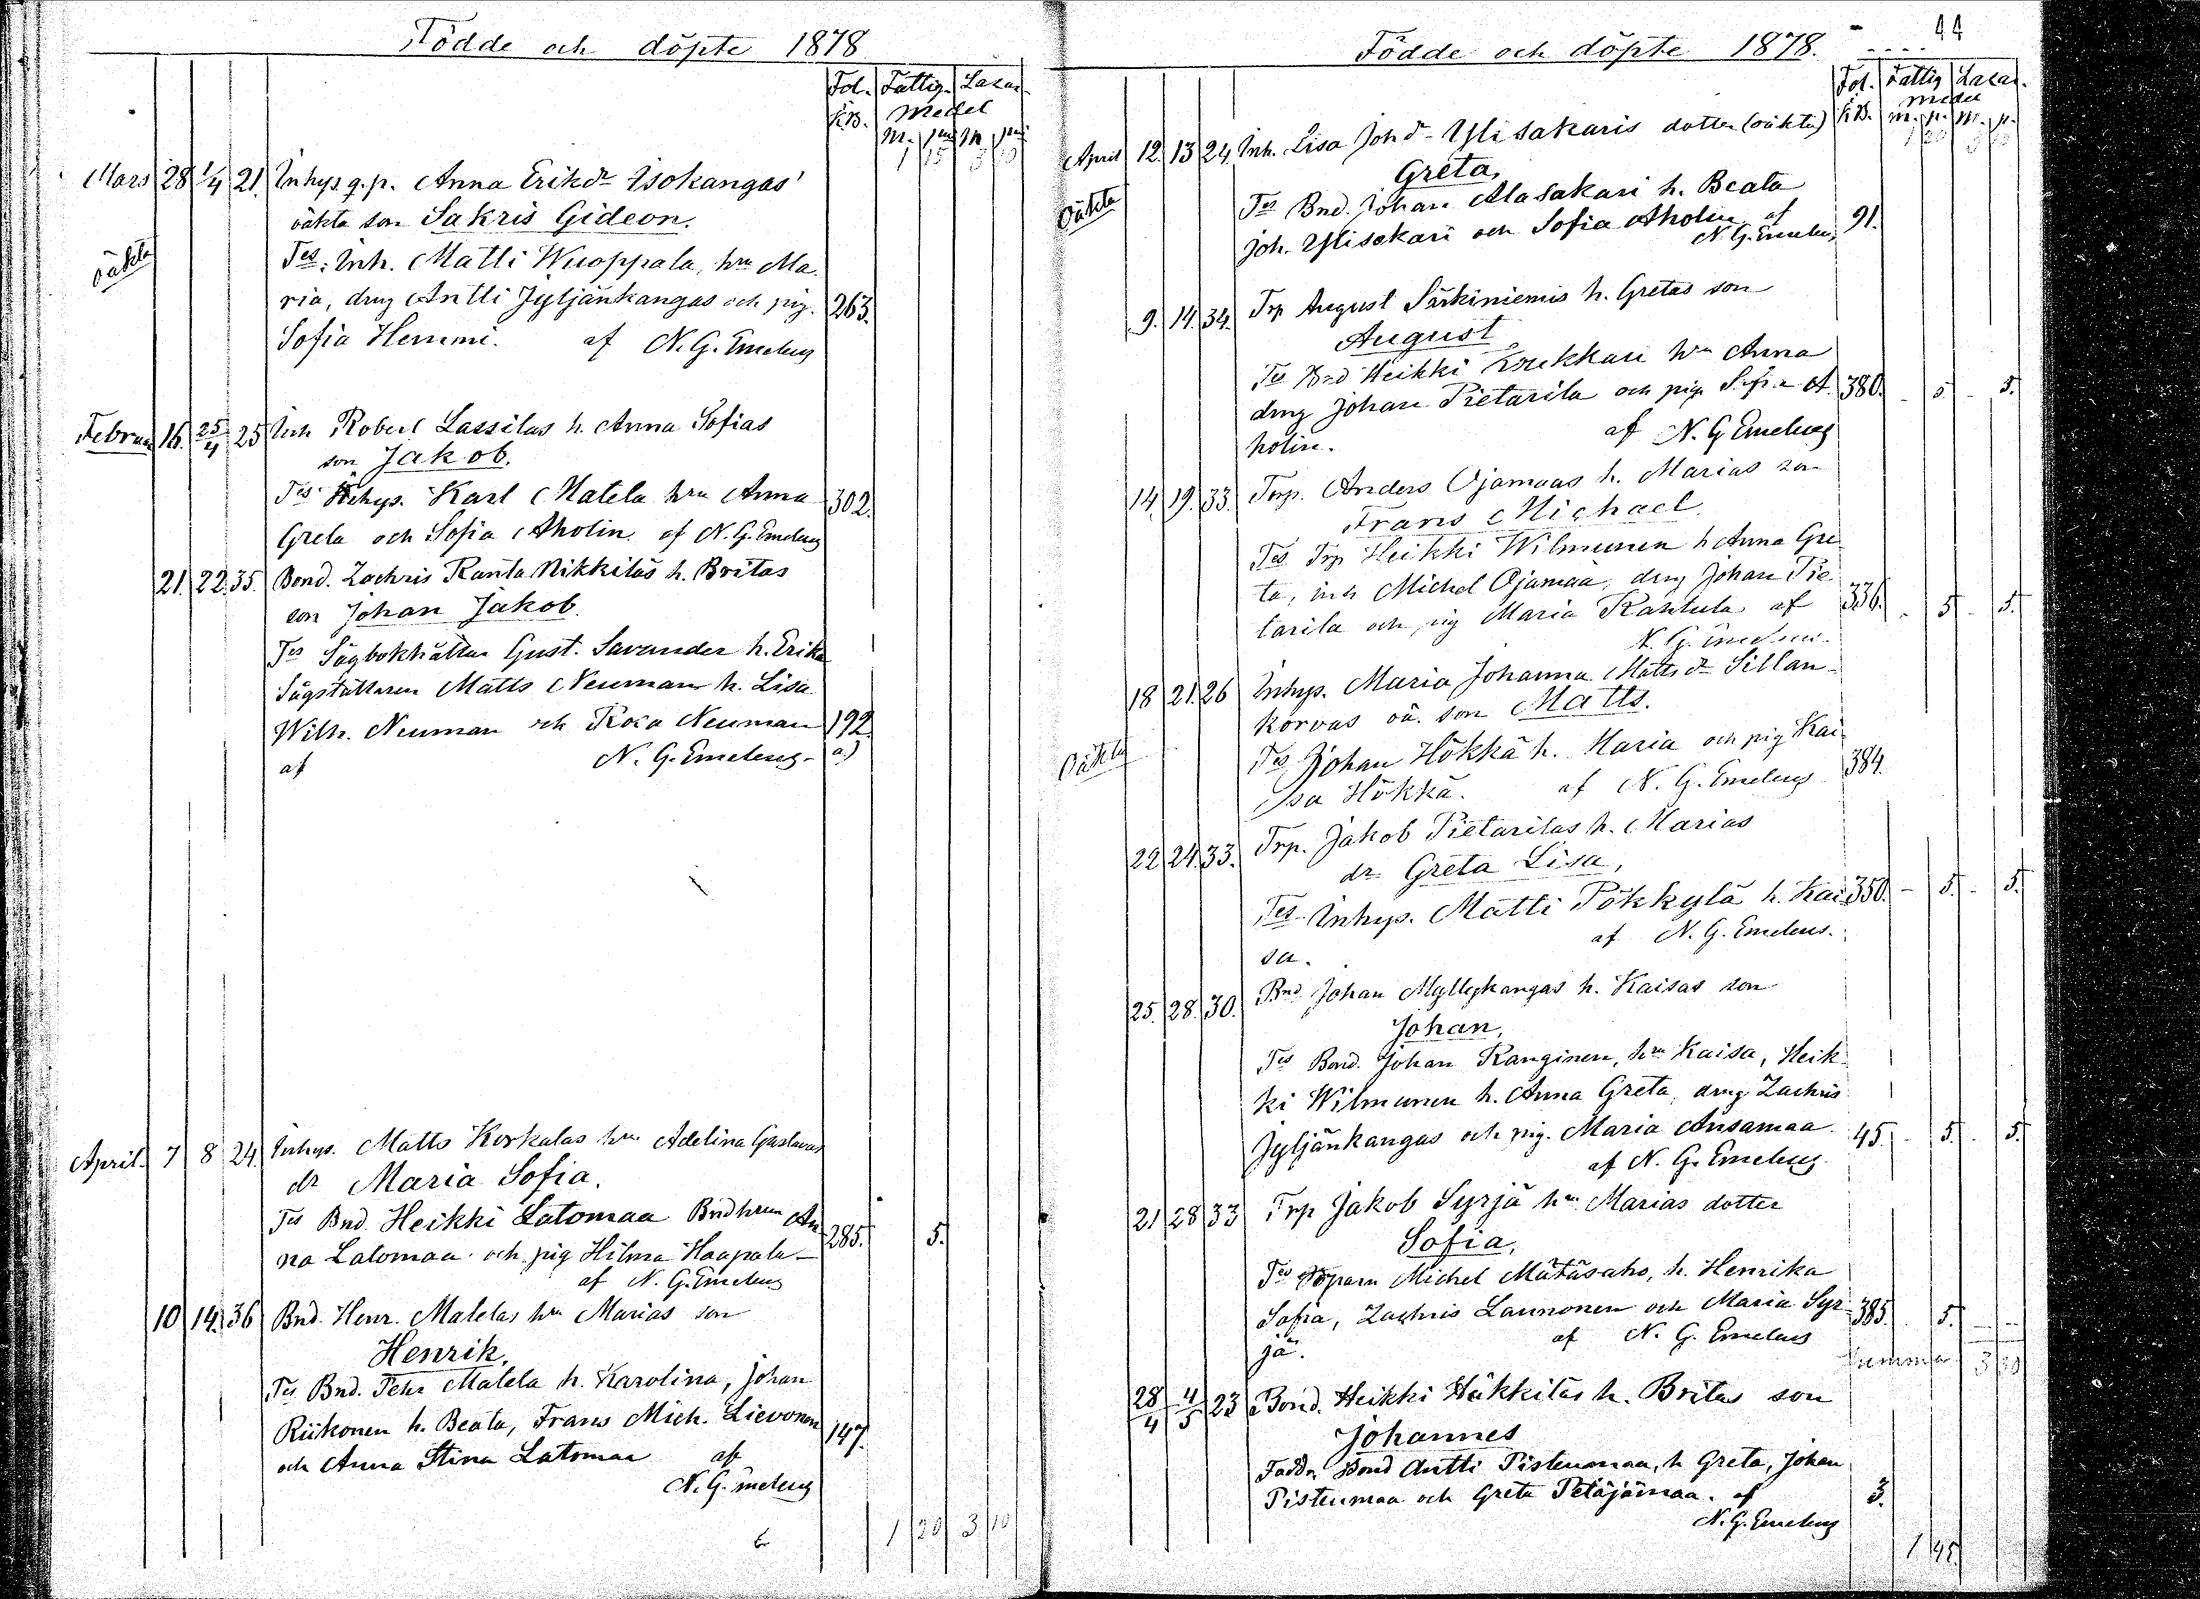 Födde och döpte 1878
Fol. Fattig. Lasar.
K.B. medel
M. pni M. pni
1 15 3 10
Mars 28 1/4 21. Inhys q.p. Anna Erikdr Isokangas'
oäkta son Sakris Gideon.
Oäkta
Tes: Inh. Matti Wuoppala, hru Ma-
ria, drng Antti Jyljänkangas och pig. 263.
Sofia Hemmi. af N. G. Emeleus
Februari 16. 25/4 25 Inh Robert Lassilas h. Anna Sofias
son Jakob.
Tes Inhys. Karl Matela hru Anna 302.
Greta och Sofia Aholin af N. G. Emeleus
21. 22. 35. Bond. Zachris Ranta Nikkiläs h. Britas
son Johan Jakob.
Tes Sågbokhållar Gust. Savander h. Erika
Sågställaren Matts Neuman h. Lisa
Wilh. Neuman och Rosa Neuman 192
af N. G. Emeleus - a)
April. 7 8 24. Inhys. Matts Korkalas hru Adelina Gustavas
dr Maria Sofia.
Tes Bnd. Heikki Latomaa Bndhrun An-
na Latomaa och pig Hilma Haapala - 285. 5.
af N. G. Emeleus
10 14. 36 Bnd. Henr. Matelas hru Marias son
Henrik,
Tes Bnd. Pehr Matela h. Karolina, Johan
Riikonen h. Beata, Frans Mich. Lievonen 147.
och Anna Stina Latomaa af
N. G. Emeleus
1 20 3 10
44
Födde och döpte 1878.
Fol. Fattig Lasar.
K.B. medel
m. p. m. p.
April 12. 13 24. Inh. Lisa Joh dr Ylisakaris dotter (oäkta)
Greta,
Oäkta
Tes Bnd. Johan Alasakari h. Beata
Joh. Ylisakari och Sofia Aholin af 91.
N. G. Emeleus
9. 14. 34. Trp August Särkiniemis h. Gretas son
August
Tes Bnd Heikki Krekkari hru Anna
drng Johan Pietarila och pig. Sofia A- 380. - 5 - 5.
holin. af N. G. Emeleus
14. 19. 33. Torp. Anders Ojamaas h. Marias son
Frans Michael.
Tes Trp Heikki Wilmunen h Anna Gre-
ta, inh Michel Ojamaa, drng Johan Pie-
tarila och pig Maria Rahtula af 336. - 5 - 5.
N. G. Emeleus.
18 21. 26 Inhys. Maria Johanna Matts dr Sillan-
korvas oä. son Matts.
Oäkta
Tes Johan Hökkä h. Maria och pig Kai-
sa Hökkä. af N. G. Emeleus 384.
22 24. 33. Trp. Jakob Pietarilas h. Marias
dr Greta Lisa,
Tes Inhys. Matti Pökkylä h. Kai- 350. - 5. - 5.
sa. af N. G. Emeleus.
25. 28. 30. Bnd Johan Myllykangas h. Kaisas son
Johan,
Tes Bond. Johan Kanginen, hru Kaisa, Heik-
ki Wilmunen h. Anna Greta, drng Zachris
Jyljänkangas och pig. Maria Ansamaa 45. - 5. - 5.
af N. G. Emeleus
21 28 33 Trp Jakob Syrjä hru Marias dotter
Sofia,
Tes Torparn Michel Mätäsaho, h. Henrika
Sofia, Zachris Launonen och Maria Syr- 385. 5. -
jä. af N. G. Emeleus
Summa 3 20
28/4 4/5 23 Bond. Heikki Häkkiläs h. Britas son
Johannes
Faddr. Bond Antti Pistenmaa, h Greta, Johan
Pistenmaa och Greta Petäjämaa. af 3.
N. G. Emeleus
1 45